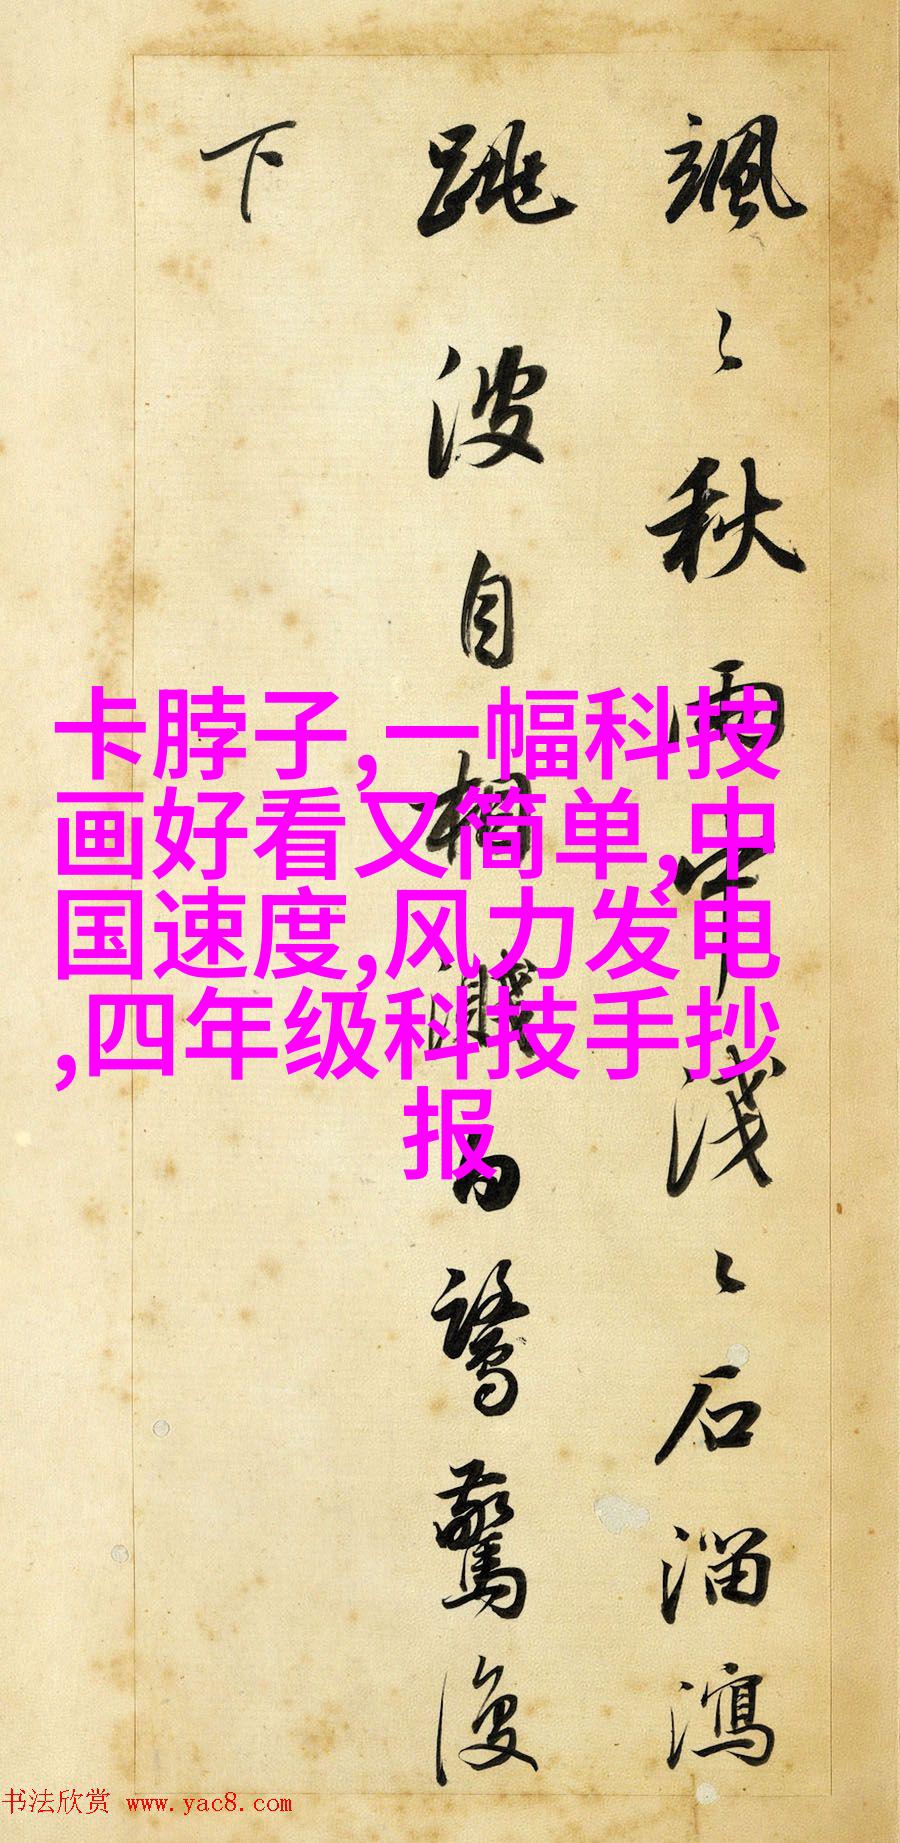 颯〻秋雨中淺〻石溜瀉
跳波自相濺白鷺驚復
下
卡脖子,一幅科技
画好看又简单,中
国速度,风力发电
,四年级科技手抄
报
书法欣赏 www.yac8.com